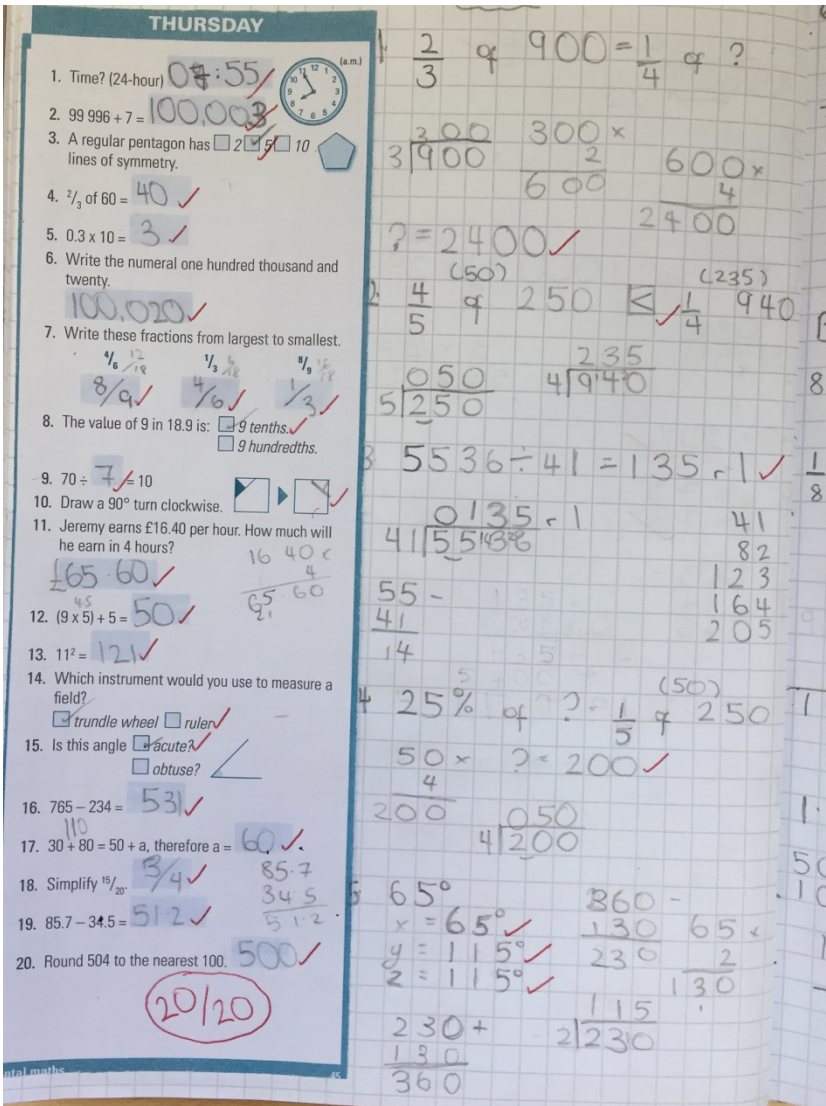 THURSDAY
1. Time? (24-hour) 07:55
(a.m.)
12 1 2 3 4 5 6 7 8 9 10 11
2. 99 996 + 7 = 100,003
3. A regular pentagon has 2 5 10
lines of symmetry.
4. 2/3 of 60 = 40
5. 0.3 x 10 = 3
6. Write the numeral one hundred thousand and
twenty.
100,020
7. Write these fractions from largest to smallest.
4/6 12/18 1/3 6/18 8/9 16/18
8/9 4/6 1/3
8. The value of 9 in 18.9 is: 9 tenths.
9 hundredths.
9. 70 ÷ 7 = 10
10. Draw a 90° turn clockwise.
11. Jeremy earns £16.40 per hour. How much will
he earn in 4 hours?
16 40 x
4
65.60
2 1
£65.60
45
12. (9 x 5) + 5 = 50
13. 11² = 121
14. Which instrument would you use to measure a
field?
trundle wheel ruler
15. Is this angle acute?
obtuse?
16. 765 – 234 = 531
110
17. 30 + 80 = 50 + a, therefore a = 60
18. Simplify 15/20. 3/4
85.7
34.5
51.2
19. 85.7 – 34.5 = 51.2
20. Round 504 to the nearest 100. 500
20/20
ntal maths
45
1. 2/3 of 900 = 1/4 of ?
300
3 900
300 x
2
600
600 x
4
2400
? = 2400
(50) (235)
2. 4/5 of 250 < 1/4 940
050
5 250
235
4 940
3 5536 ÷ 41 = 135 r 1
0135 r 1
41 55 14 3 20 6
41
82
123
164
205
55 -
41
14
(50)
4 25% of ? = 1/5 of 250
50 x ? = 200
4
200
050
4 200
5 65°
x = 65°
y = 115°
z = 115°
360 -
130
230
65 x
2
130
230 +
130
360
115
2 230
8
1/8